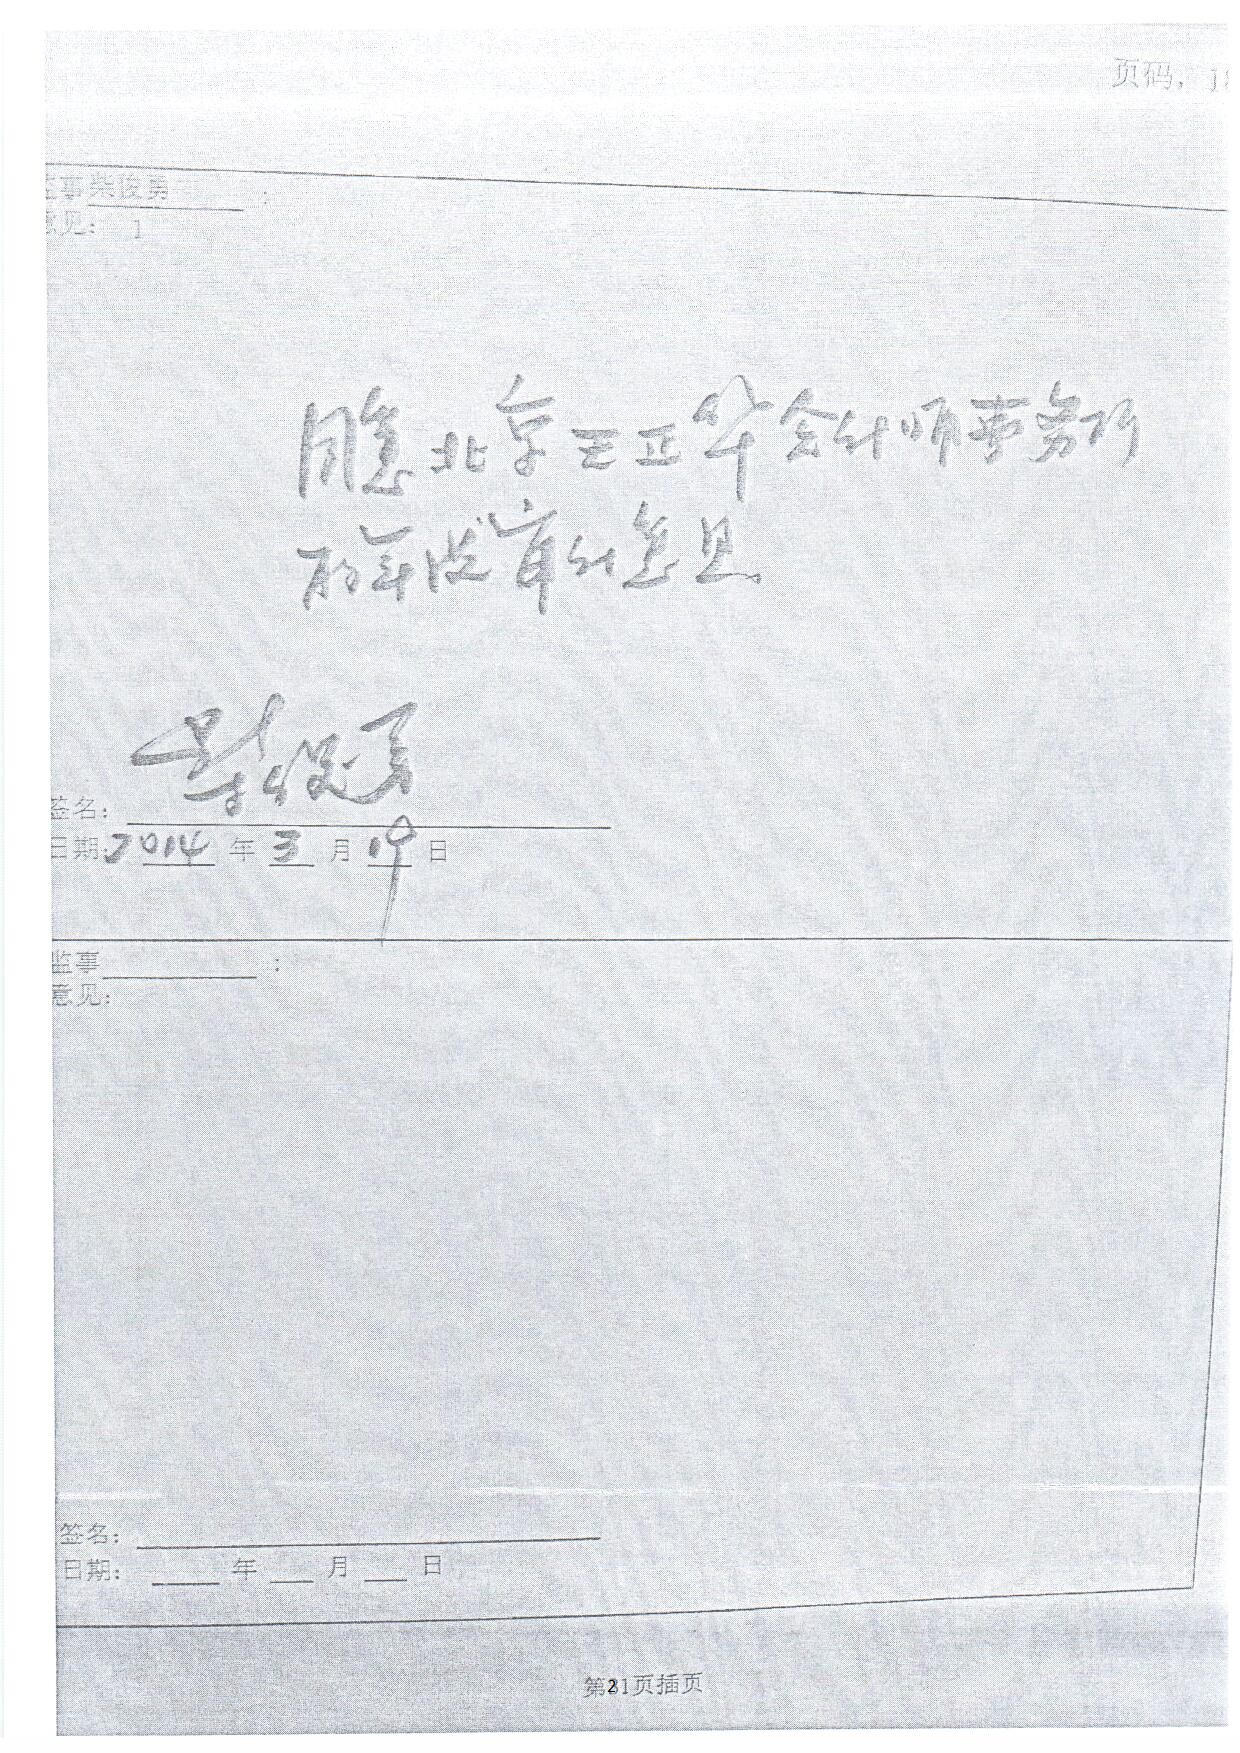 页码, 1
监事柴俊勇 :
意见: 1
同意北京王正华会计师事务所
的年度审计意见
签名: 柴俊勇
日期: 2014 年 3 月 19 日
监事 :
意见:
签名:
日期: 年 月 日
第21页插页